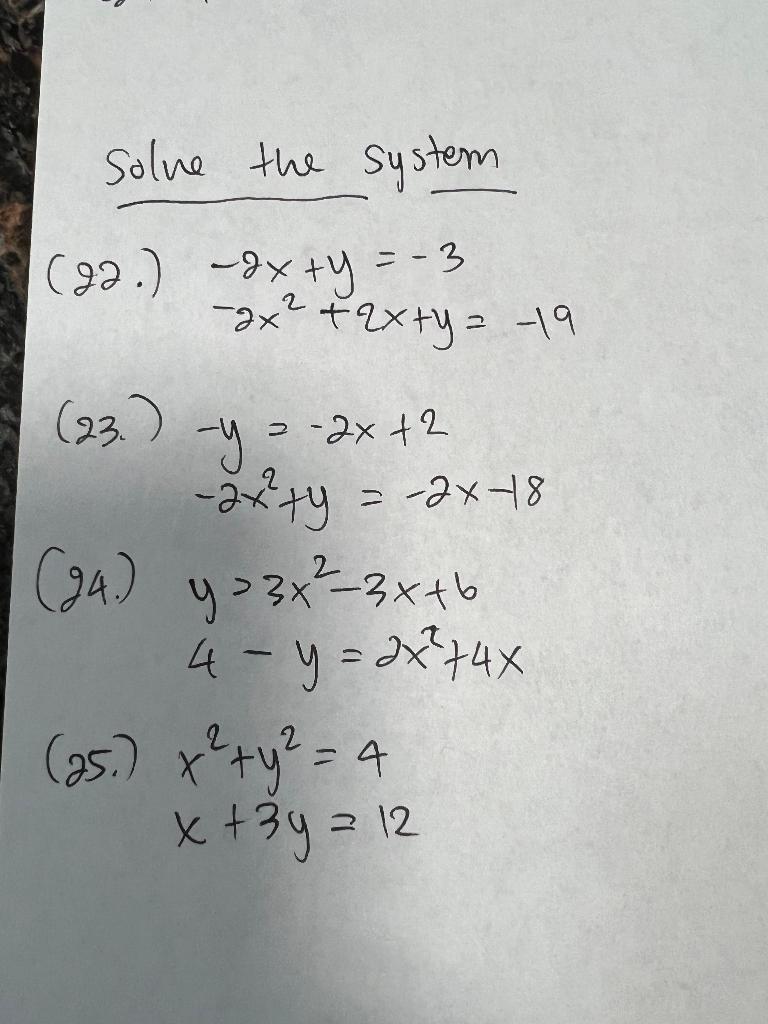 Solve the system
(22.) -2x+y = -3
-2x² +2x+y = -19
(23.) -y = -2x +2
-2x²+y = -2x-18
(24.) y = 3x²-3x+6
4 - y = 2x²+4x
(25.) x²+y² = 4
x +3y = 12